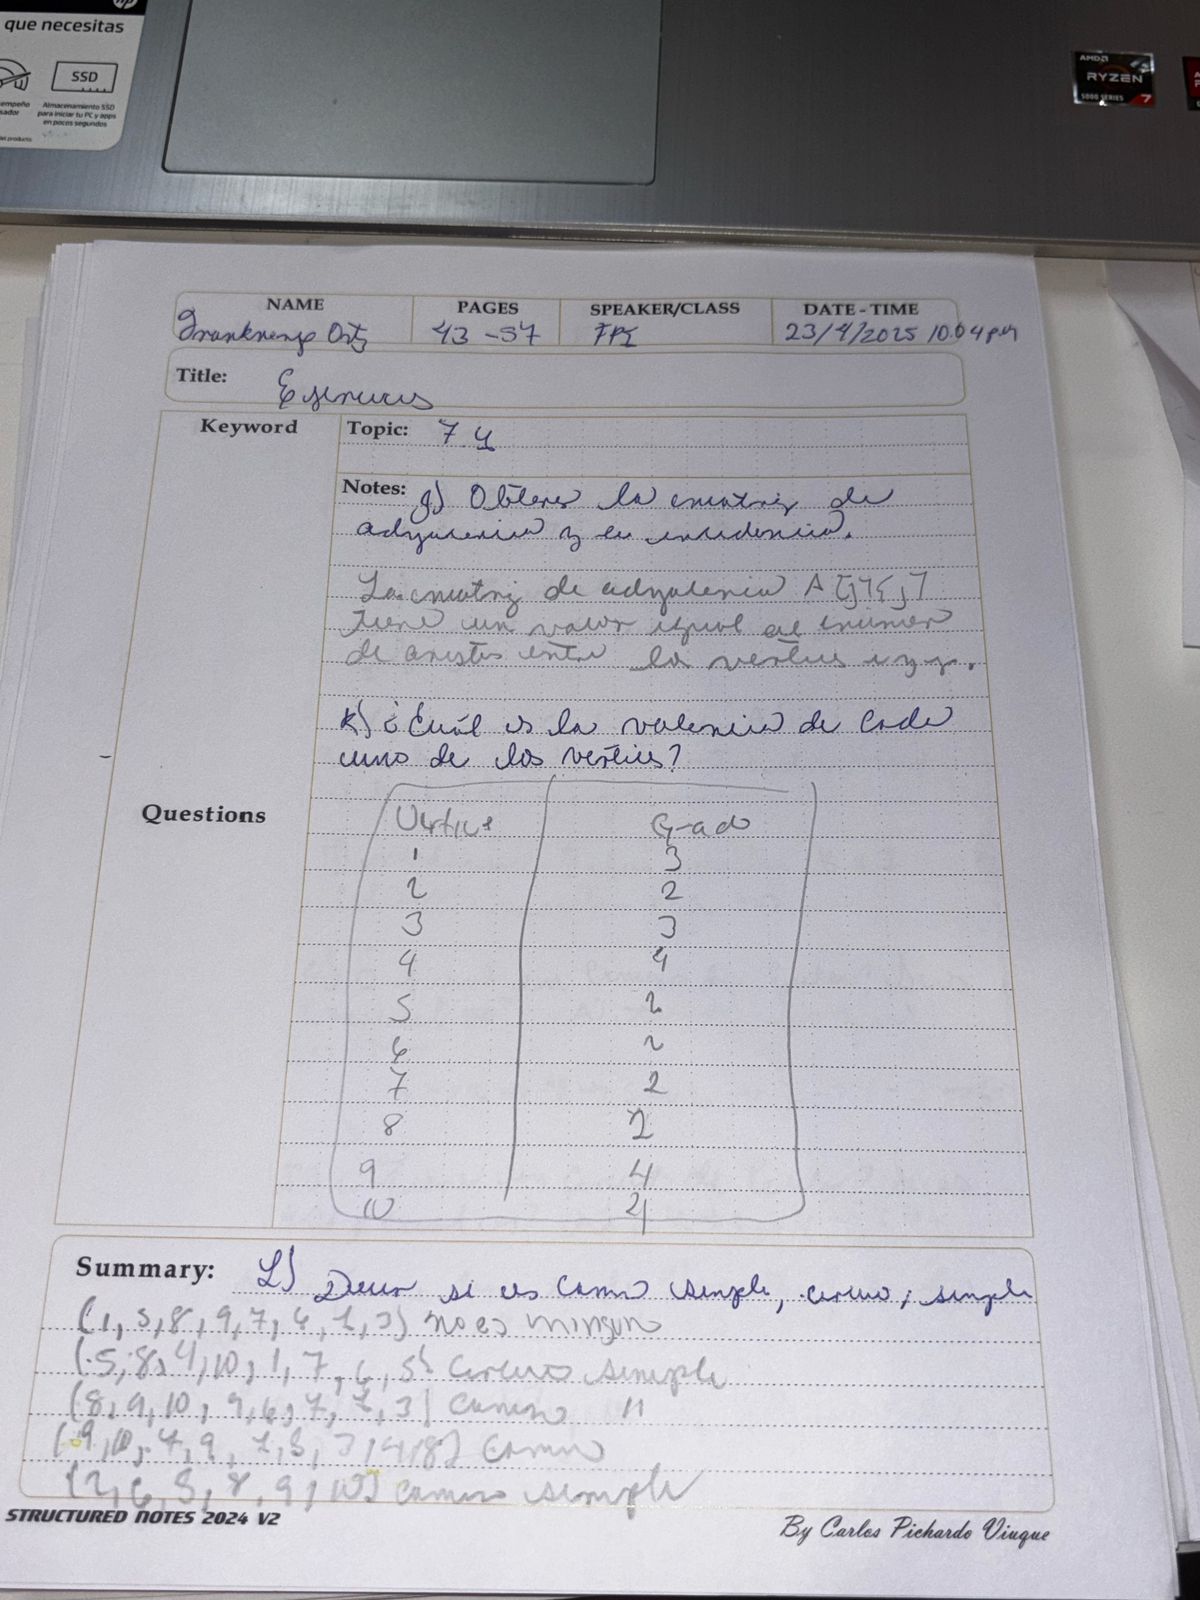 hp
que necesitas
SSD
Almacenamiento SSD
para iniciar tu PC y apps
en pocos segundos
AMD
RYZEN
5000 SERIES 7
NAME PAGES SPEAKER/CLASS DATE - TIME
43 - 57 23/4/2025 10:04 pm
Title:
Keyword
Topic: 7.4
Notes: g) Obtener la matriz de
adyacencia y en incidencia.
La matriz de adyacencia
Tiene un valor igual al número
de aristas entre los vertices i y j.
k) ¿Cuál es la valencia de cada
uno de los vertices?
Questions
Vertice Grado
1 3
2 2
3 3
4 4
5 2
6 2
7 2
8 2
9 4
10 4
Summary: L) Decir si es camino simple, circuito, simple
no es ningun
circuito simple
(8, 9, 10, 9, 6, 7, 2, 3) camino 11
camino
camino simple
STRUCTURED NOTES 2024 V2
By Carlos Pichardo Viuque